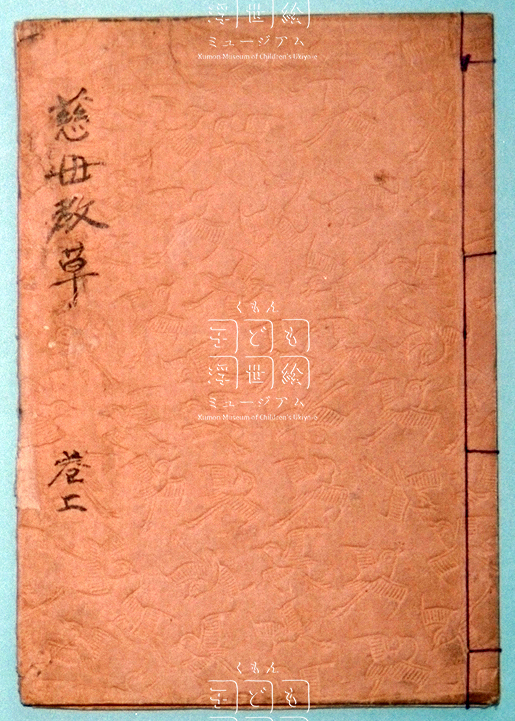 慈母教草
巻上
浮世絵
ミュージアム
Kumon Museum of Children's Ukiyo-e
くもん
子ども
浮世絵
ミュージアム
Kumon Museum of Children's Ukiyo-e
くもん
子ども